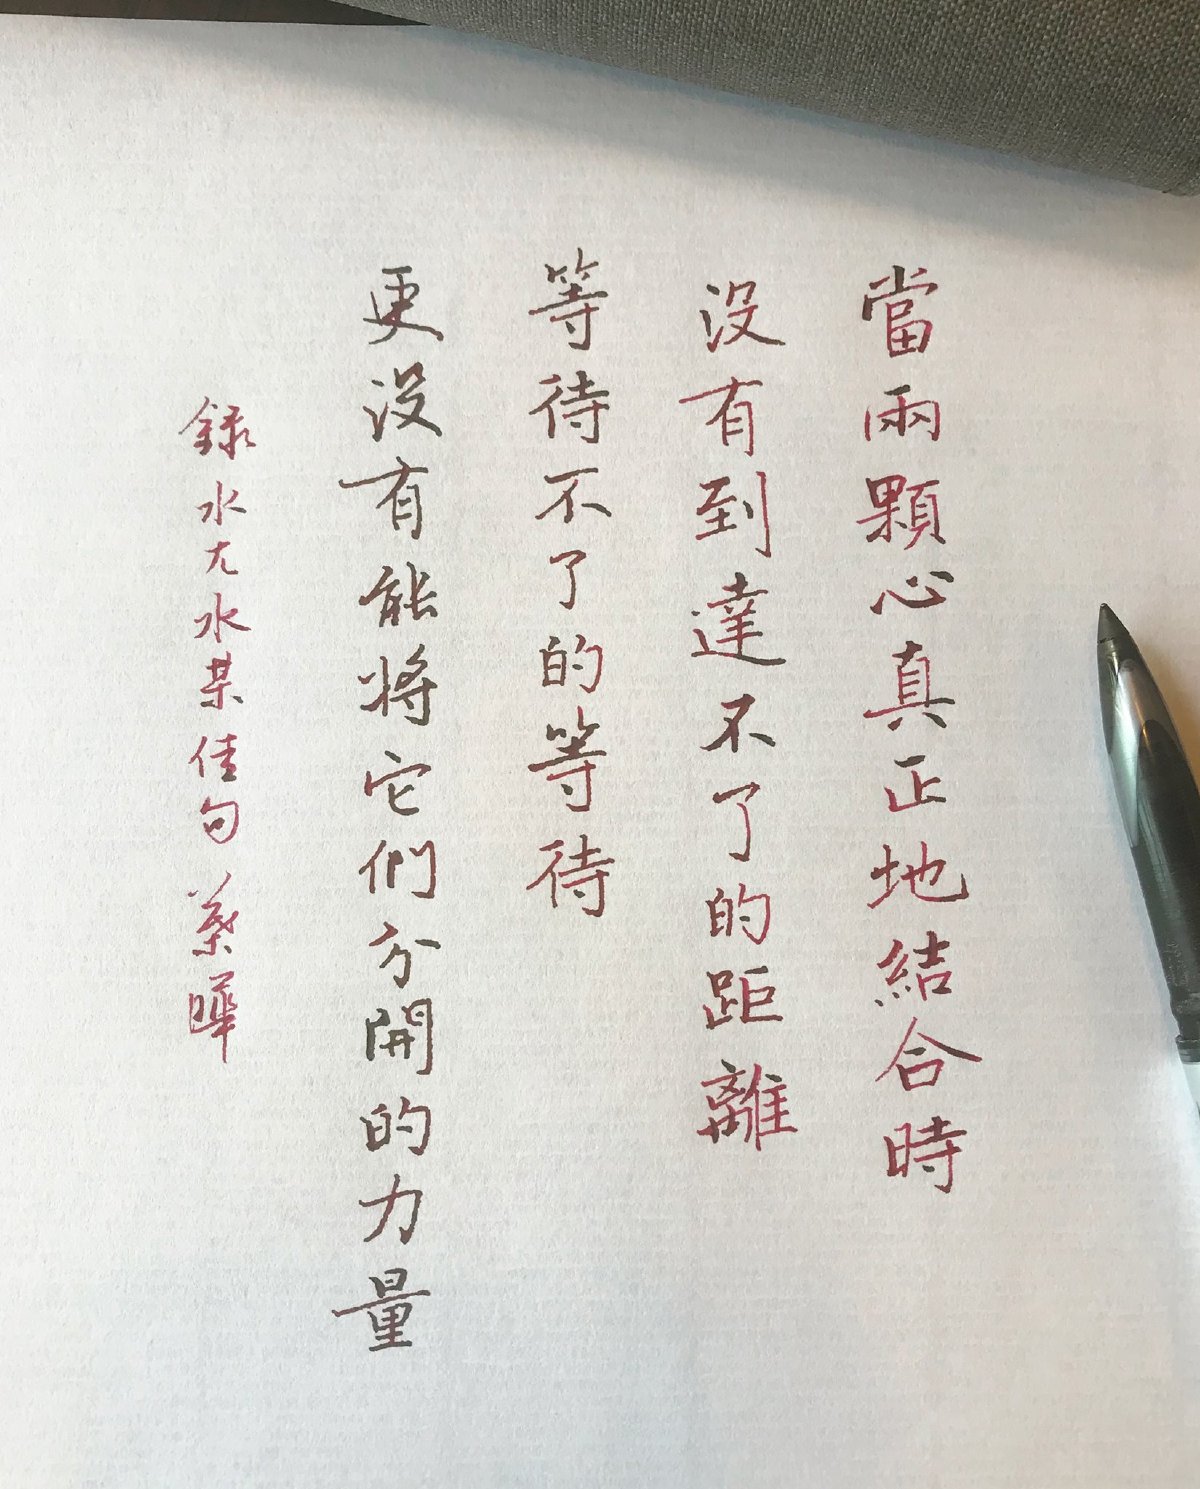 當兩顆心真正地結合時
沒有到達不了的距離
等待不了的等待
更沒有能將它們分開的力量
錄水尢水某佳句 葉曄